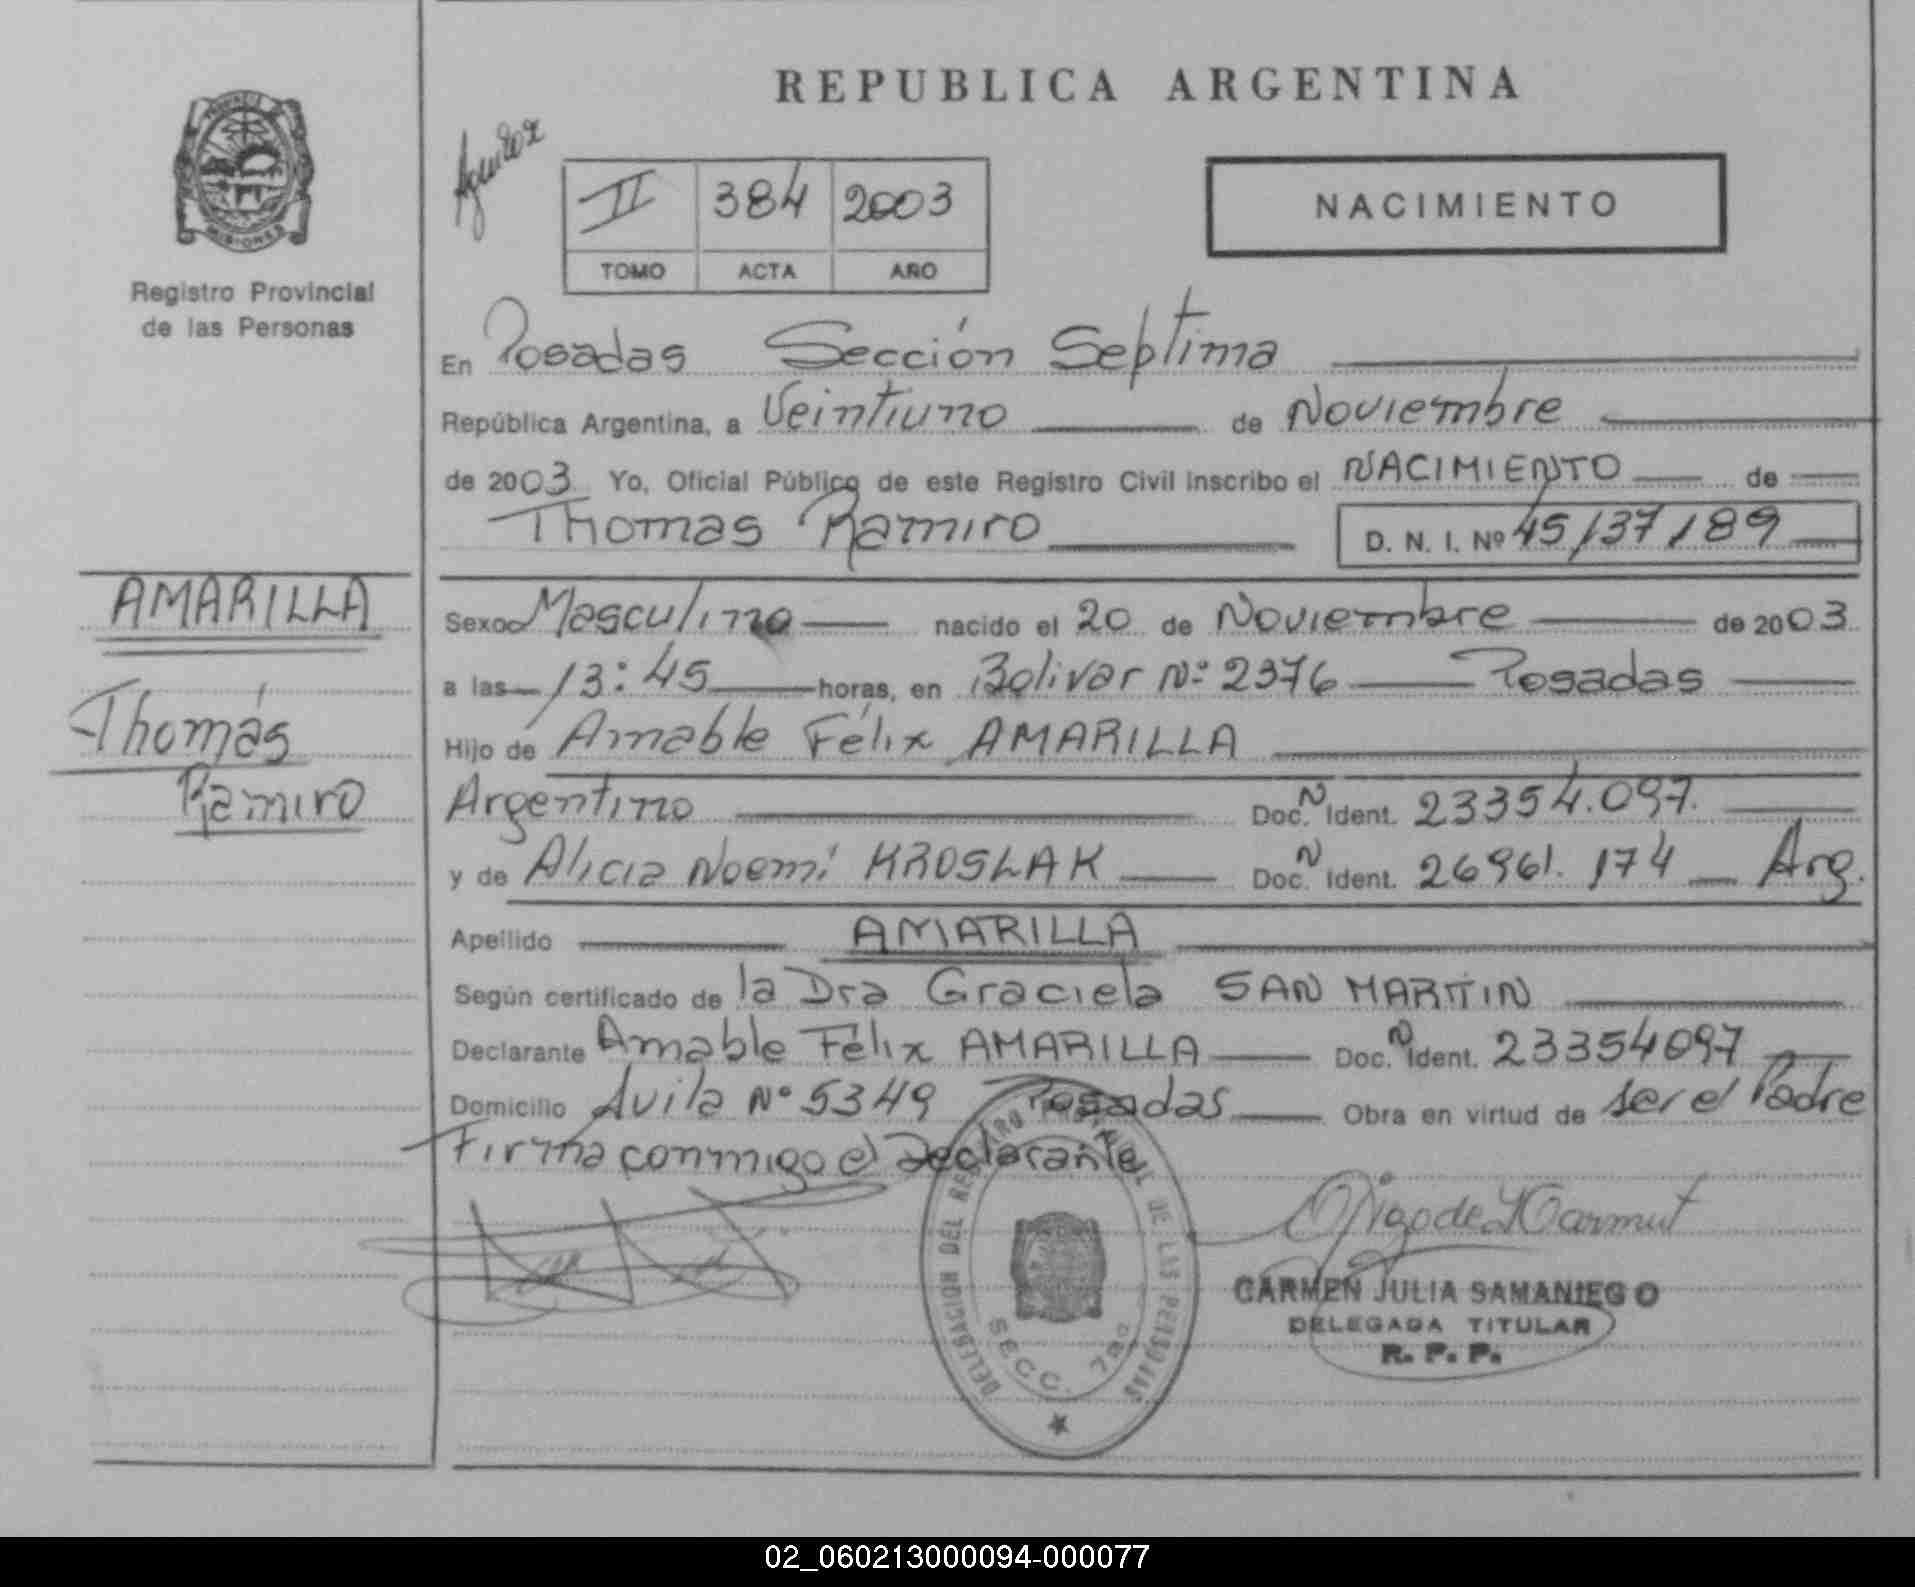 REPUBLICA ARGENTINA
PROVINCIA
MISIONES
Registro Provincial
de las Personas
II 384 2003
TOMO ACTA AÑO
NACIMIENTO
En Posadas Sección Septima
República Argentina, a Veintiuno de Noviembre
de 2003 Yo, Oficial Público de este Registro Civil inscribo el NACIMIENTO de
Thomas Ramiro D. N. I. Nº 45/37/189
AMARILLA
Thomás
Ramiro
Sexo Masculino nacido el 20 de Noviembre de 2003
a las 13:45 horas, en Bolivar Nº 2376 Posadas
Hijo de Amable Félix AMARILLA
Argentino Doc. N Ident. 23354.097.
y de Alicia Noemí KROSLAK Doc. N Ident. 26961.174 Arg.
Apellido AMARILLA
Según certificado de la Dra Graciela SAN MARTIN
Declarante Amable Félix AMARILLA Doc. N Ident. 23354097
Domicilio Avila Nº 5349 Posadas Obra en virtud de ser el Padre
Firma conmigo el Declarante
DELEGACION DEL REGISTRO PROVINCIAL DE LAS PERSONAS
SECC. 7ma
CARMEN JULIA SAMANIEGO
DELEGADA TITULAR
R. P. P.
02_060213000094-000077